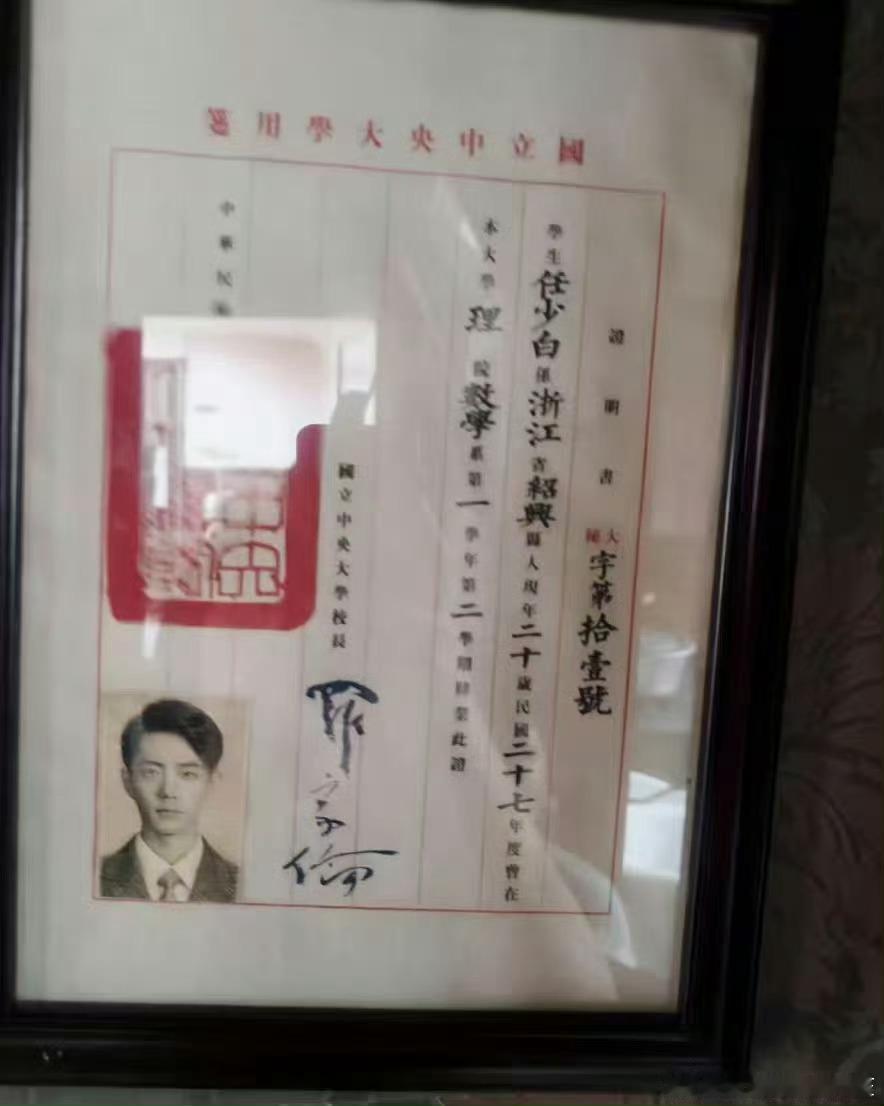 國立中央大學用箋
證明書
大 字第拾壹號
學生任少白係浙江省紹興縣人現年二十歲民國二十七年度曾在
本大學理院數學系第一學年第二學期肄業此證
國立中央大學校長
羅家倫
中華民